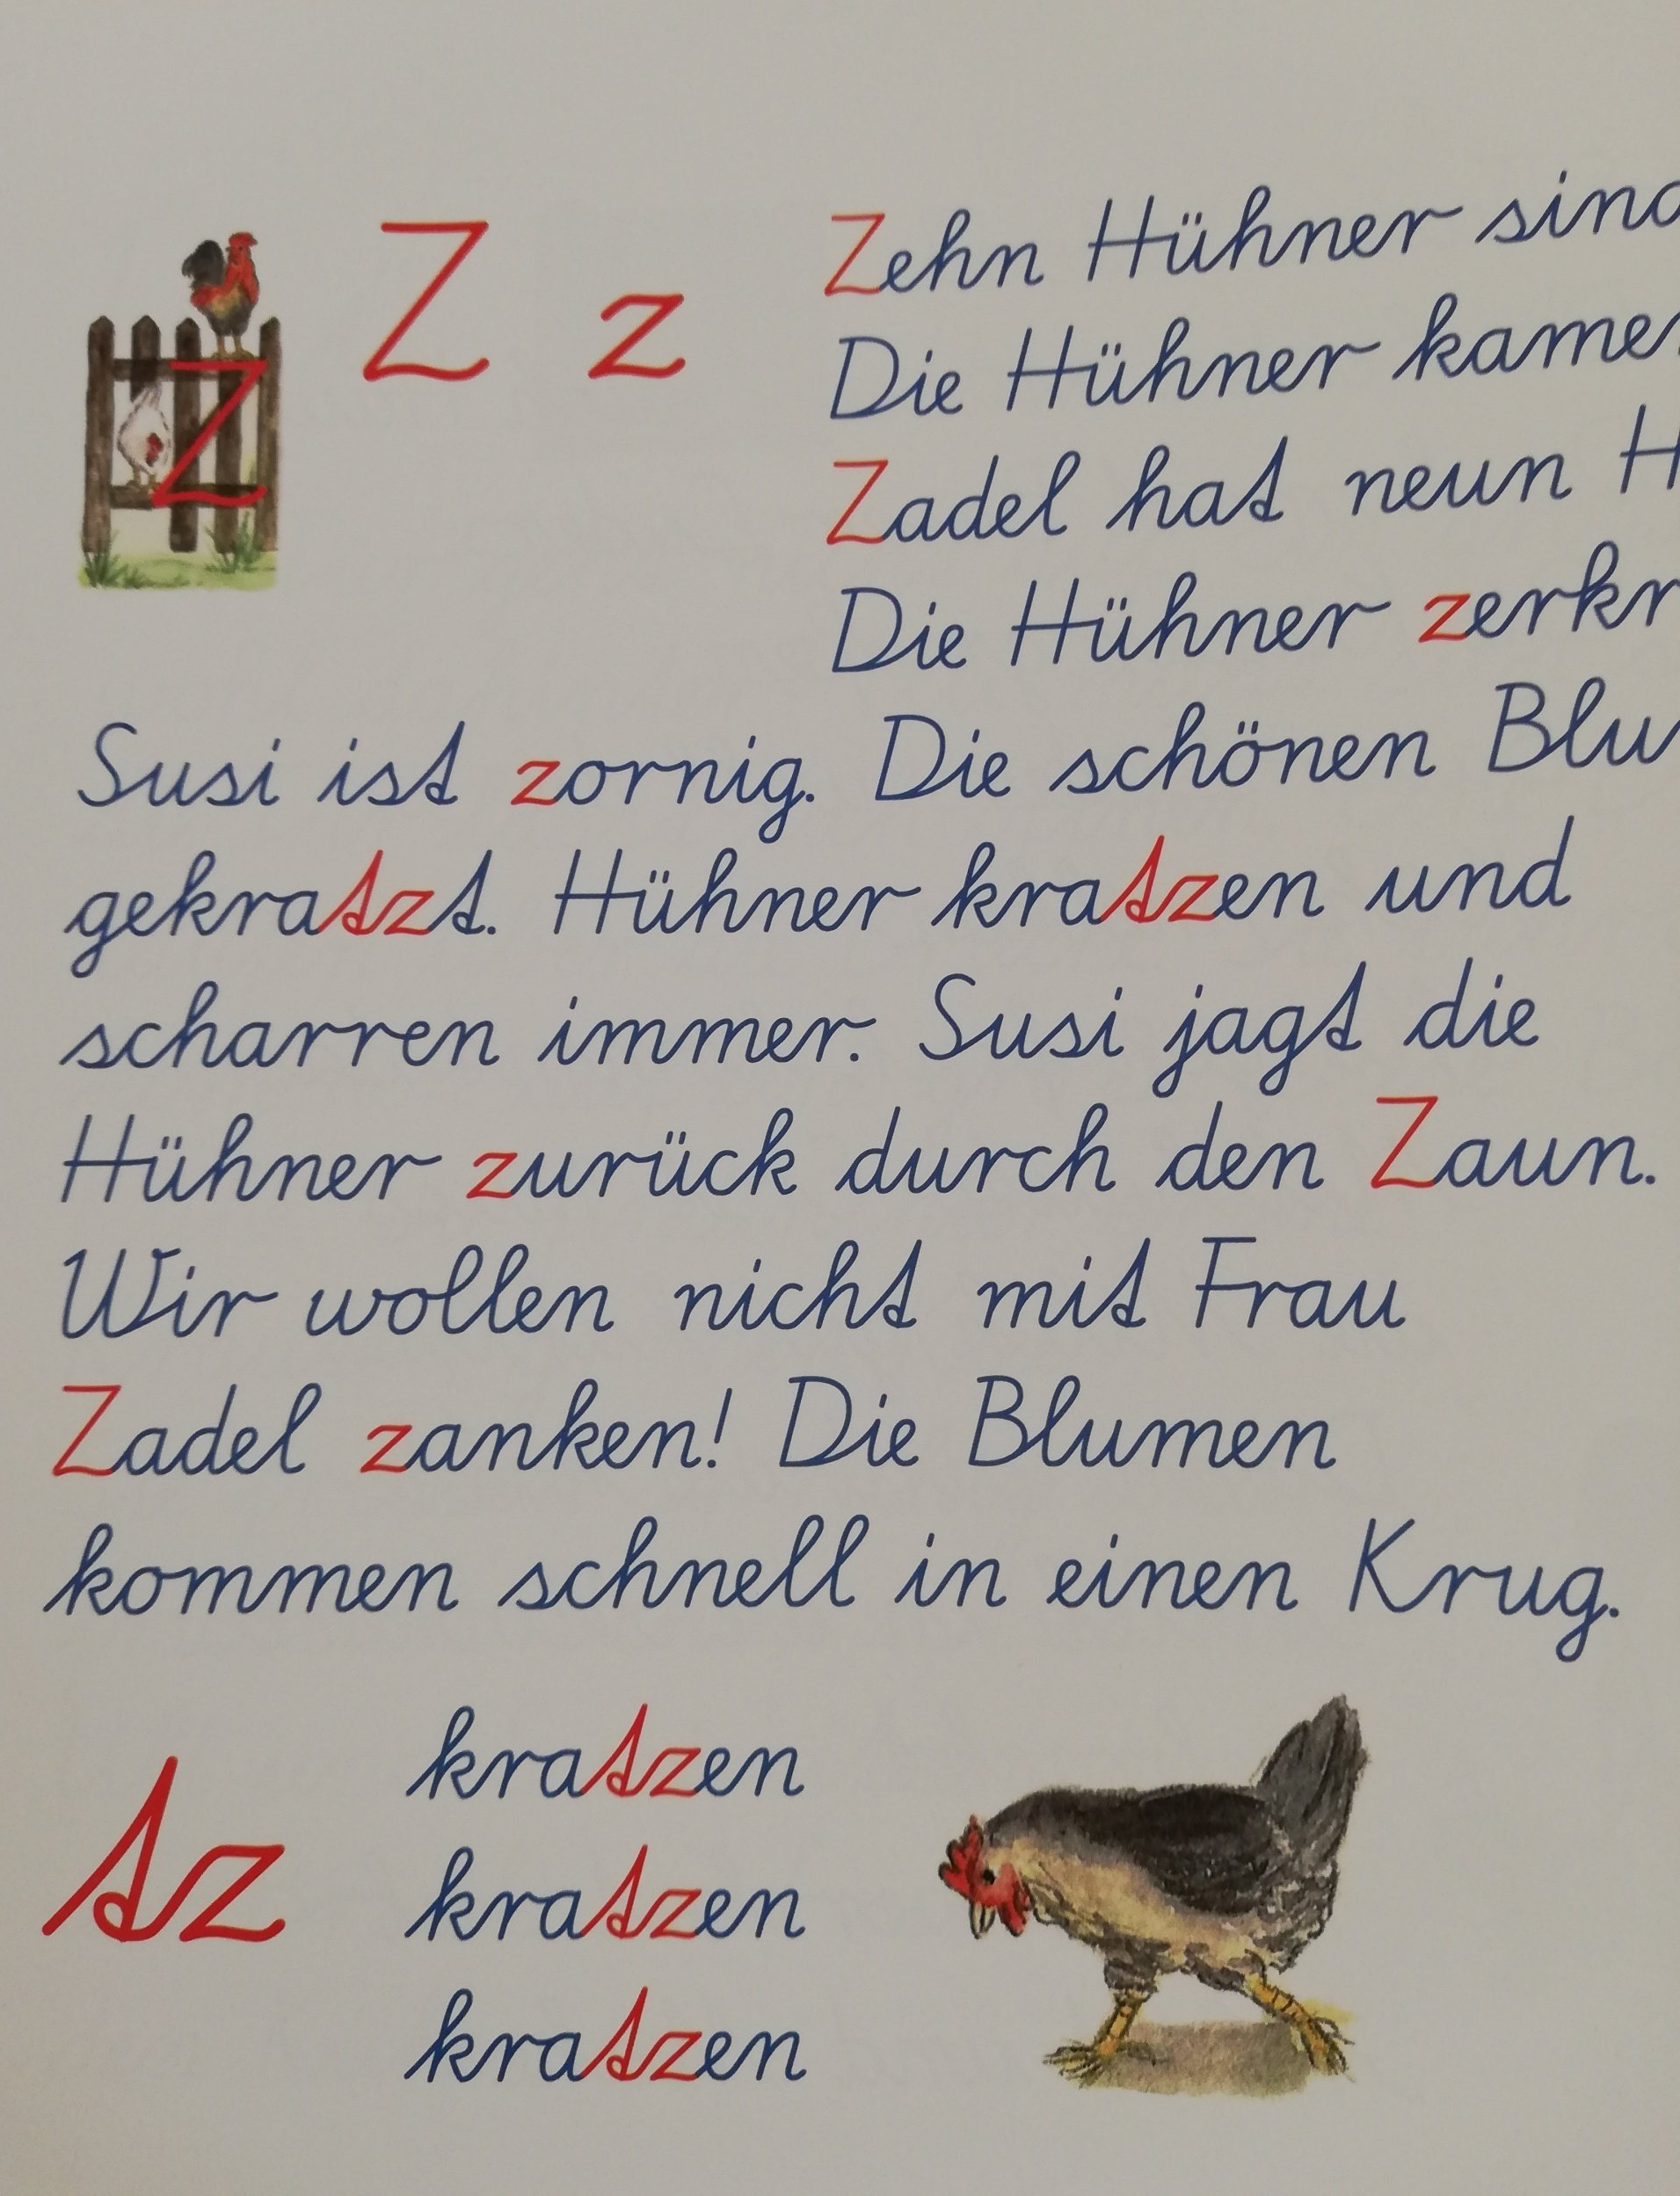 Z z
Z
Zehn Hühner
Die Hühner
Zadel hat neun
Die Hühner
Susi ist zornig. Die schönen
gekratzt. Hühner kratzen und
scharren immer. Susi jagt die
Hühner zurück durch den Zaun.
Wir wollen nicht mit Frau
Zadel zanken! Die Blumen
kommen schnell in einen Krug.
tz
kratzen
kratzen
kratzen